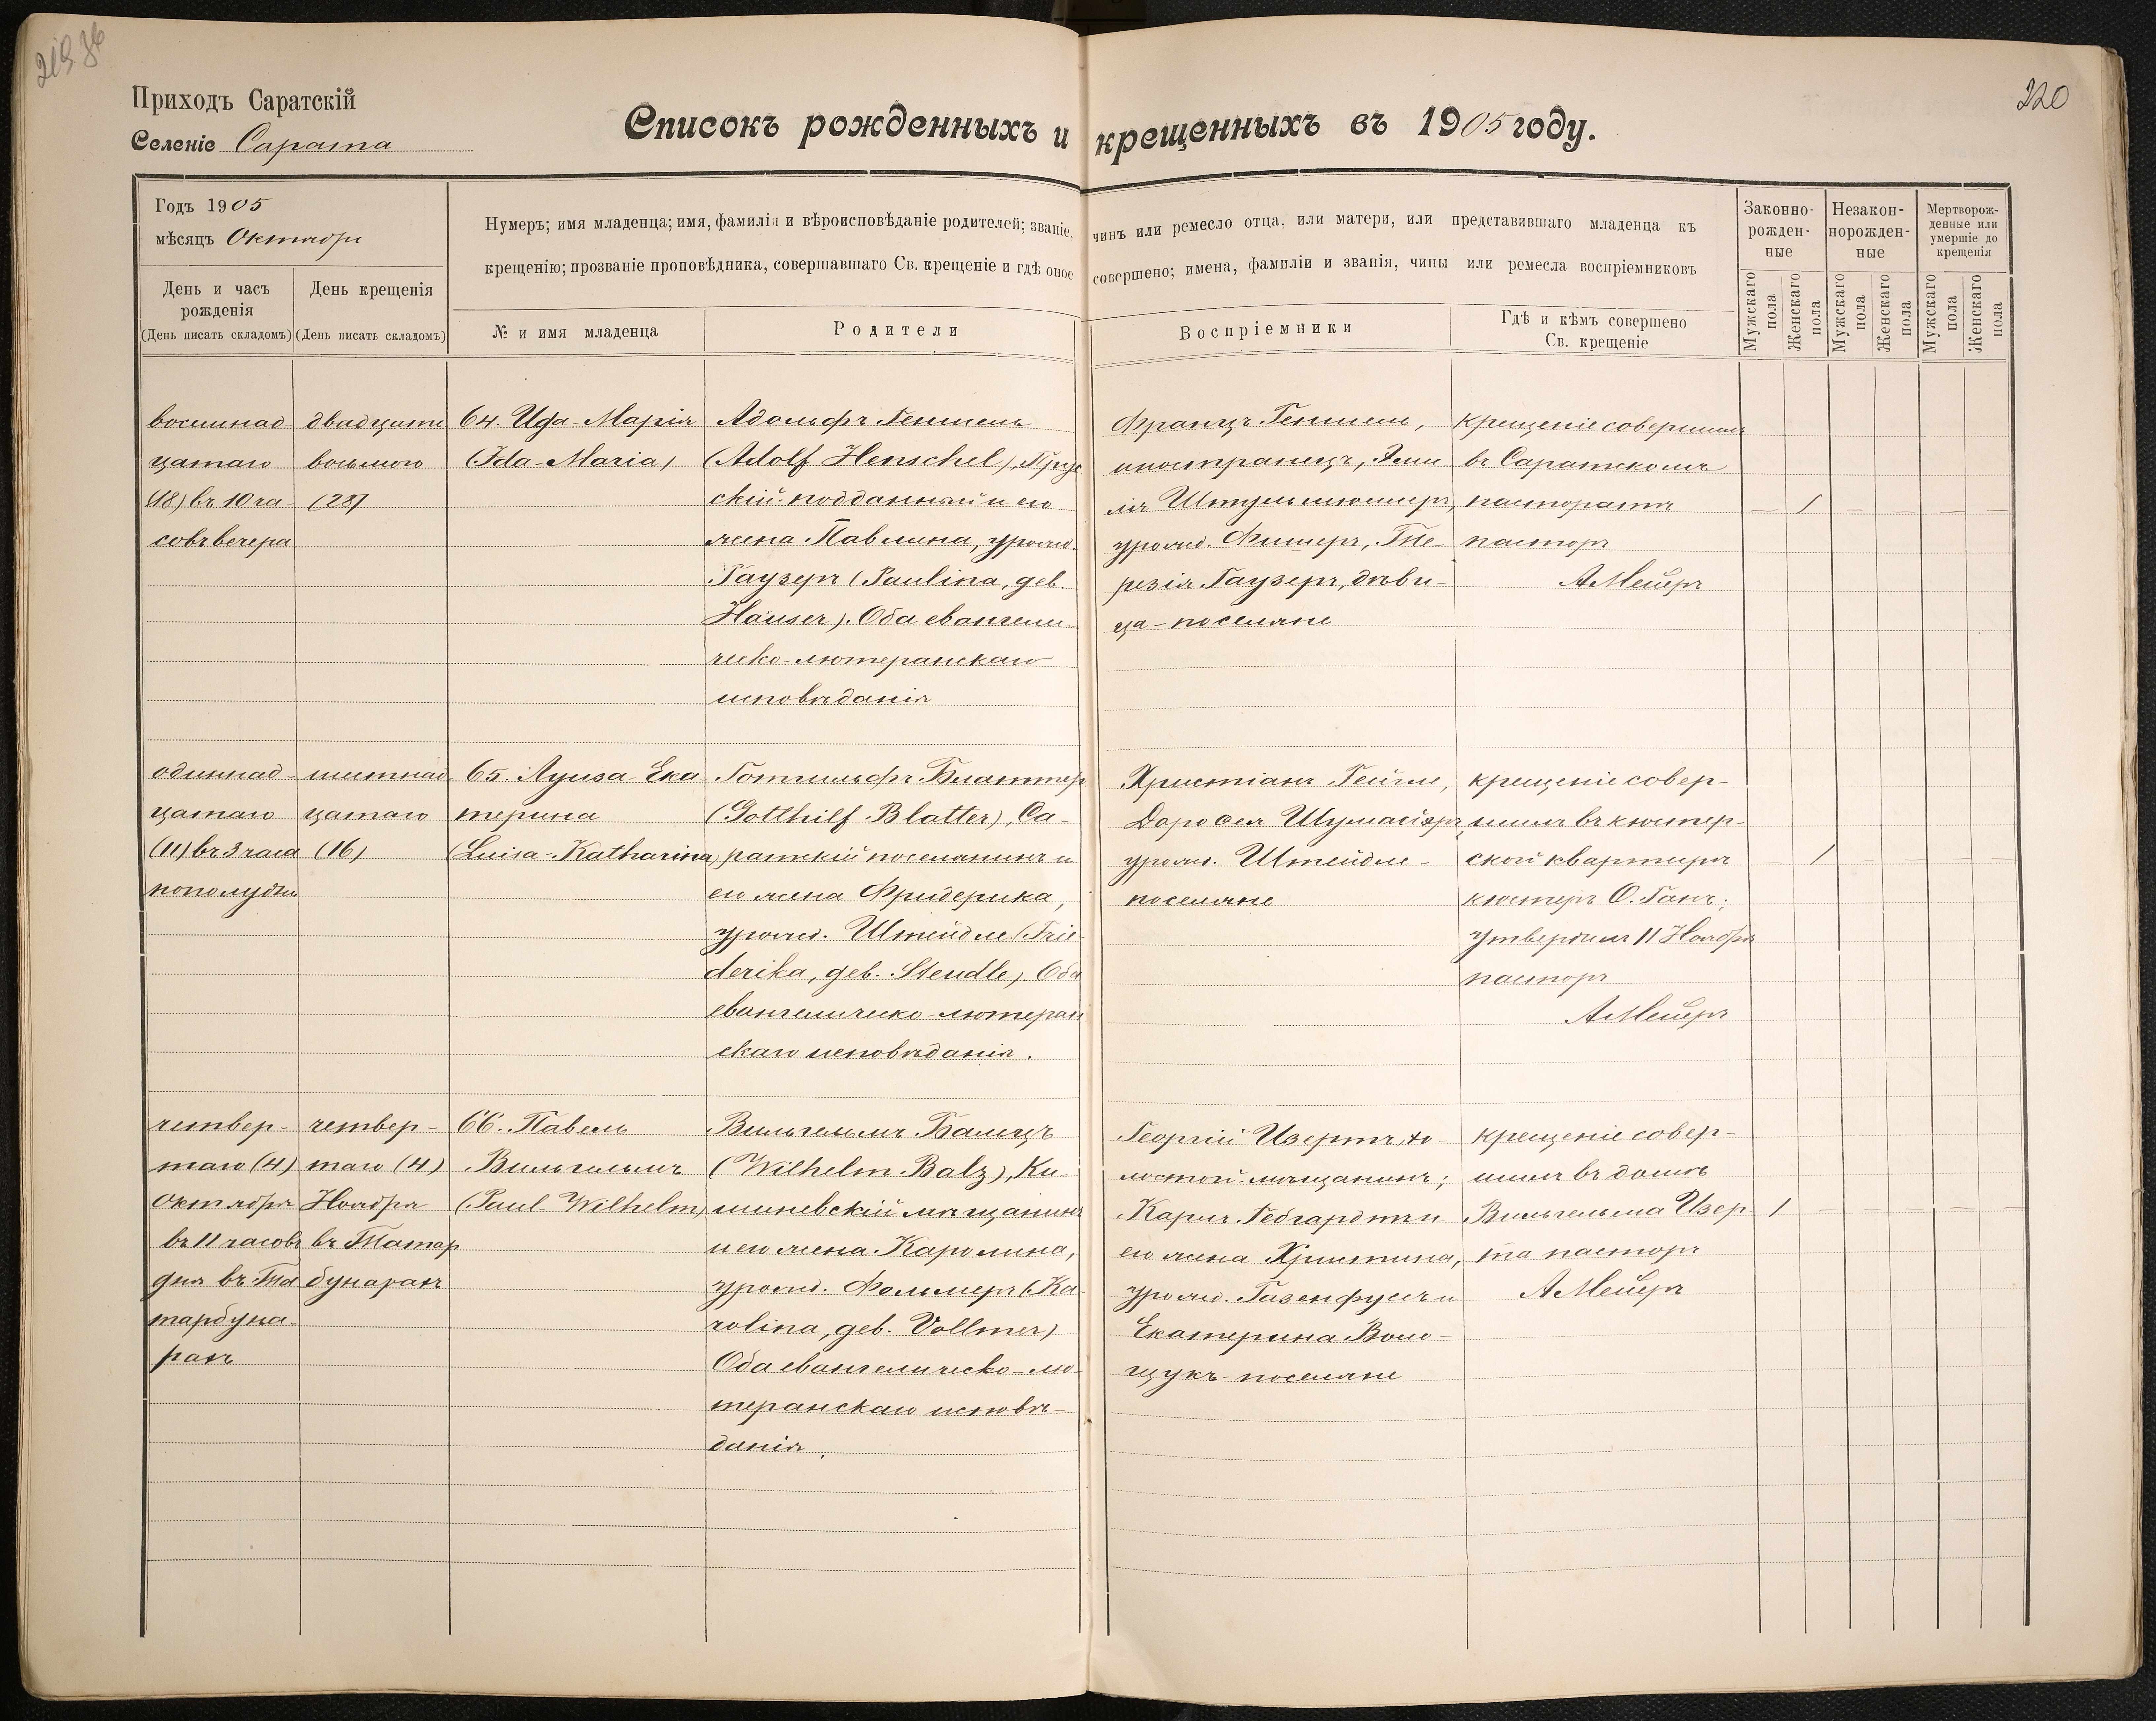 220
Приходъ Саратскій
Селеніе Сарата
Списокъ рожденныхъ и крещенныхъ въ 1905 году.
Годъ 1905
мѣсяцъ Октябрь
День и часъ рожденія
(День писать складомъ)
День крещенія
(День писать складомъ)
Нумеръ; имя младенца; имя, фамилія и вѣроисповѣданіе родителей; званіе, чинъ или ремесло отца, или матери, или представившаго младенца къ
крещенію; прозваніе проповѣдника, совершавшаго Св. крещеніе и гдѣ оное совершено; имена, фамиліи и званія, чины или ремесла воспріемниковъ
№ и имя младенца
Родители
Воспріемники
Гдѣ и кѣмъ совершено
Св. крещеніе
Законно-
рожден-
ные
Незакон-
норожден-
ные
Мертворож-
денные или
умершіе до
крещенія
Мужскаго пола
Женскаго пола
Мужскаго пола
Женскаго пола
Мужскаго пола
Женскаго пола
восемнад
цатаго
(18) въ 10 ча-
совъ вечера
двадцать
восьмого
(28)
64. Ида-Марія
(Ida-Maria)
Адольфъ Геншель
(Adolf Henschel), Прус
скій-подданный и его
жена Павлина, урожд.
Гаузеръ (Paulina, geb.
Häuser). Оба евангели-
ческо-лютеранскаго
исповѣданія
Францъ Геншель,
иностранецъ, Эми-
лія Штумпмюллеръ,
урожд. Фишеръ, Те-
резія Гаузеръ, дѣви-
ца - поселяне
крещеніе совершилъ
въ Саратскомъ
пасторатѣ
пасторъ
А Мейеръ
1
одиннад-
цатаго
(11) въ 3 часа
пополудни
шестнад
цатаго
(16)
65. Луиза-Ека
терина
(Luisa-Katharina)
Готтильфъ Блаттеръ
(Gotthilf Blatter), Са-
ратскій поселянинъ и
его жена Фридерика,
урожд. Штейдле (Frie
derika, geb. Steudle). Оба
евангелическо-лютеран
скаго исповѣданія.
Христіанъ Гейгле,
Доротея Шумайеръ,
урожд. Штейдле -
поселяне
крещеніе совер-
шилъ въ кюстер-
ской квартирѣ
кюстеръ О. Ганъ;
утвердилъ 11 Ноября
пасторъ
А Мейеръ
1
четвер-
таго (4)
Октября
въ 11 часовъ
дня въ Та
тарбуна-
рахъ
четвер-
таго (4)
Ноября
въ Татар
бунарахъ
66. Павелъ
Вильгельмъ
(Paul-Wilhelm)
Вильгельмъ Бальцъ
(Wilhelm Balz), Ки-
шиневскій мѣщанинъ
и его жена Каролина,
урожд. Фольмеръ (Ka
rolina, geb. Vollmer)
Оба евангелическо-лю-
теранскаго исповѣ-
данія.
Георгій Изертъ, хо-
лостой-мѣщанинъ;
Карлъ Гебгардтъ и
его жена Христина,
урожд. Газенфусъ и
Екатерина Воло-
щукъ-поселяне
крещеніе совер-
шилъ въ домѣ
Вильгельма Изер
та пасторъ
А Мейеръ
1